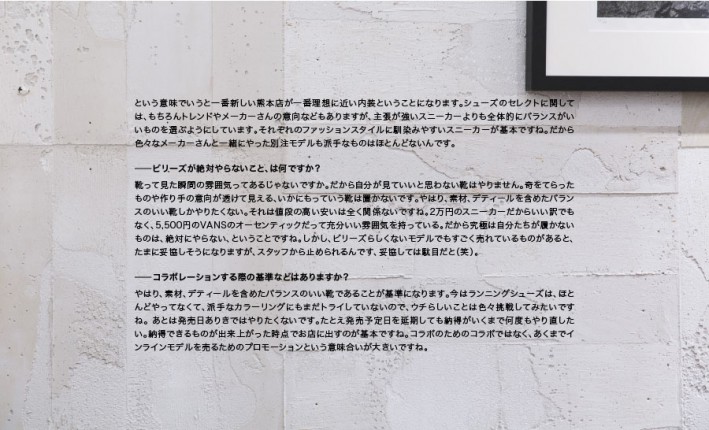 という意味でいうと一番新しい熊本店が一番理想に近い内装ということになります。シューズのセレクトに関して
は、もちろんトレンドやメーカーさんの意向などもありますが、主張が強いスニーカーよりも全体的にバランスがい
いものを選ぶようにしています。それぞれのファッションスタイルに馴染みやすいスニーカーが基本ですね。だから
色々なメーカーさんと一緒にやった別注モデルも派手なものはほとんどないんです。
──ビリーズが絶対やらないこと、は何ですか?
靴って見た瞬間の雰囲気ってあるじゃないですか。だから自分が見ていいと思わない靴はやりません。奇をてらった
ものや作り手の意向が透けて見える、いかにもっていう靴は履かないです。やはり、素材、デティールを含めたバラン
スのいい靴しかやりたくない。それは値段の高い安いは全く関係ないですね。2万円のスニーカーだからいい訳でも
なく、5,500円のVANSのオーセンティックだって充分いい雰囲気を持っている。だから究極は自分たちが履かない
ものは、絶対にやらない、ということですね。しかし、ビリーズらしくないモデルでもすごく売れているものがあると、
たまに妥協しそうになりますが、スタッフから止められるんです、妥協しては駄目だと(笑)。
──コラボレーションする際の基準などはありますか?
やはり、素材、デティールを含めたバランスのいい靴であることが基準になります。今はランニングシューズは、ほと
んどやってなくて、派手なカラーリングにもまだトライしていないので、ウチらしいことは色々挑戦してみたいです
ね。あとは発売日ありきではやりたくないです。たとえ発売予定日を延期しても納得がいくまで何度もやり直した
い。納得できるものが出来上がった時点でお店に出すのが基本ですね。コラボのためのコラボではなく、あくまでイ
ンラインモデルを売るためのプロモーションという意味合いが大きいですね。